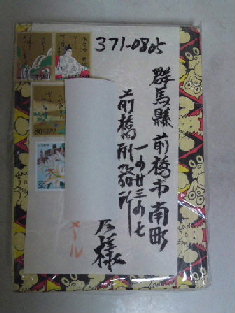 371-0805
群馬縣前橋市南町
一の廿三の七
前橋刑務所
様
メール